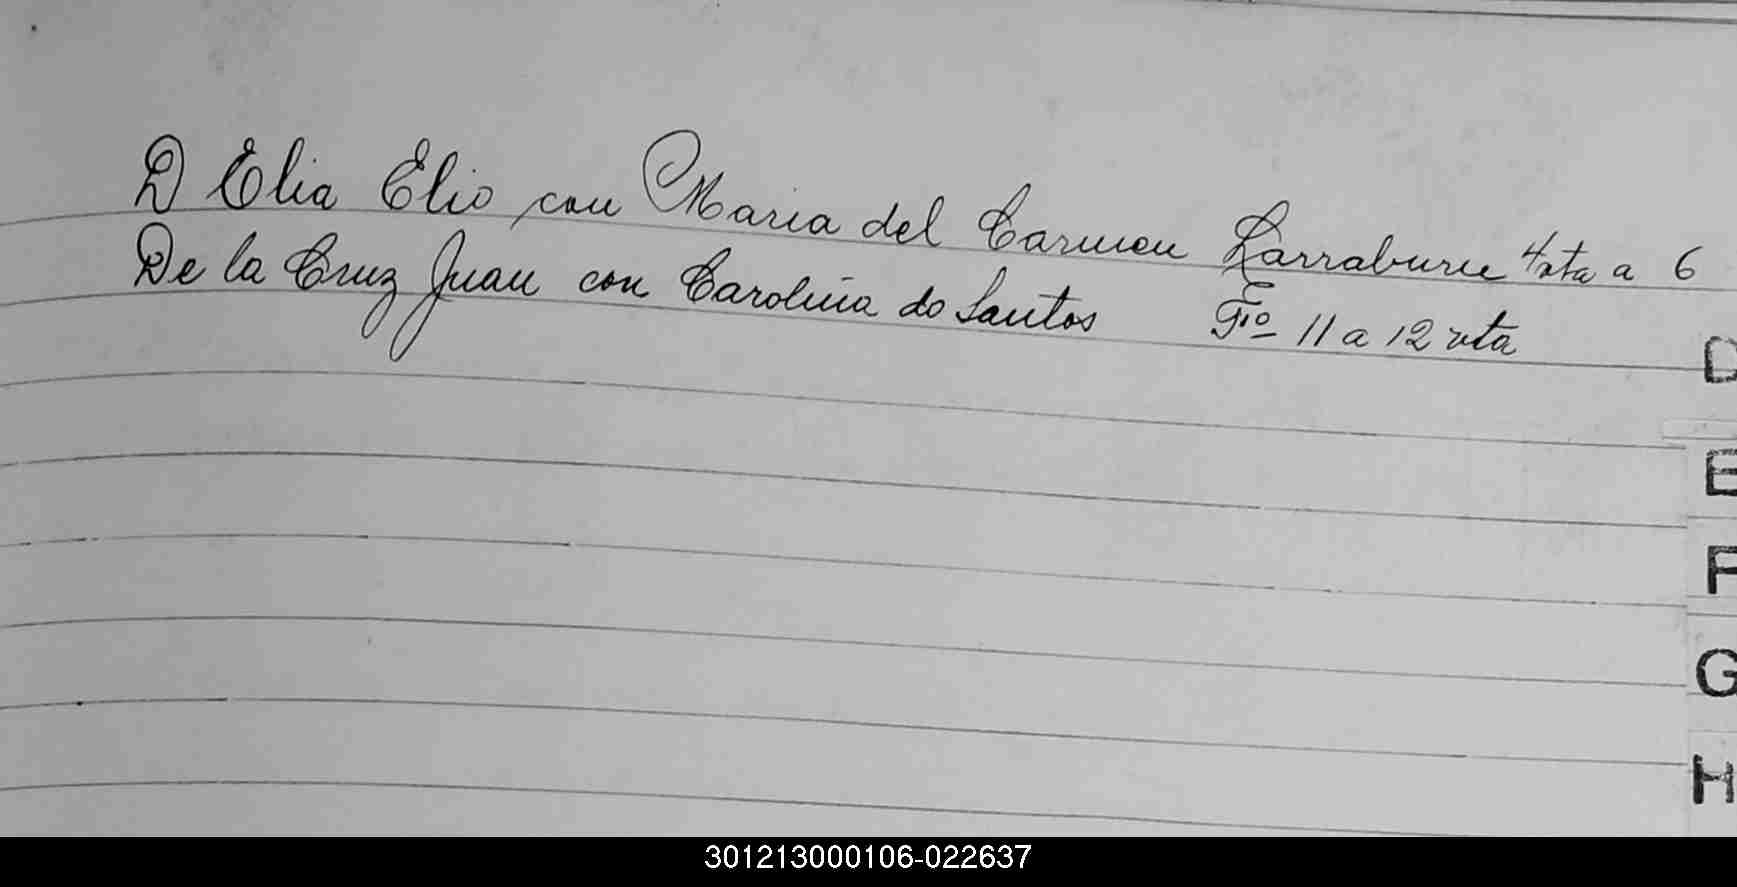 D Elia Elio con Maria del Carmen Larraburu 4 vta a 6
De la Cruz Juan con Carolina do Santos Fº 11 a 12 vta
D
E
F
G
H
301213000106-022637